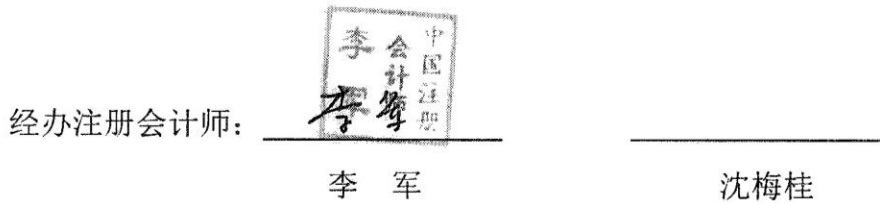 中国注册
会计师
李军
经办注册会计师：李军
李 军 沈梅桂